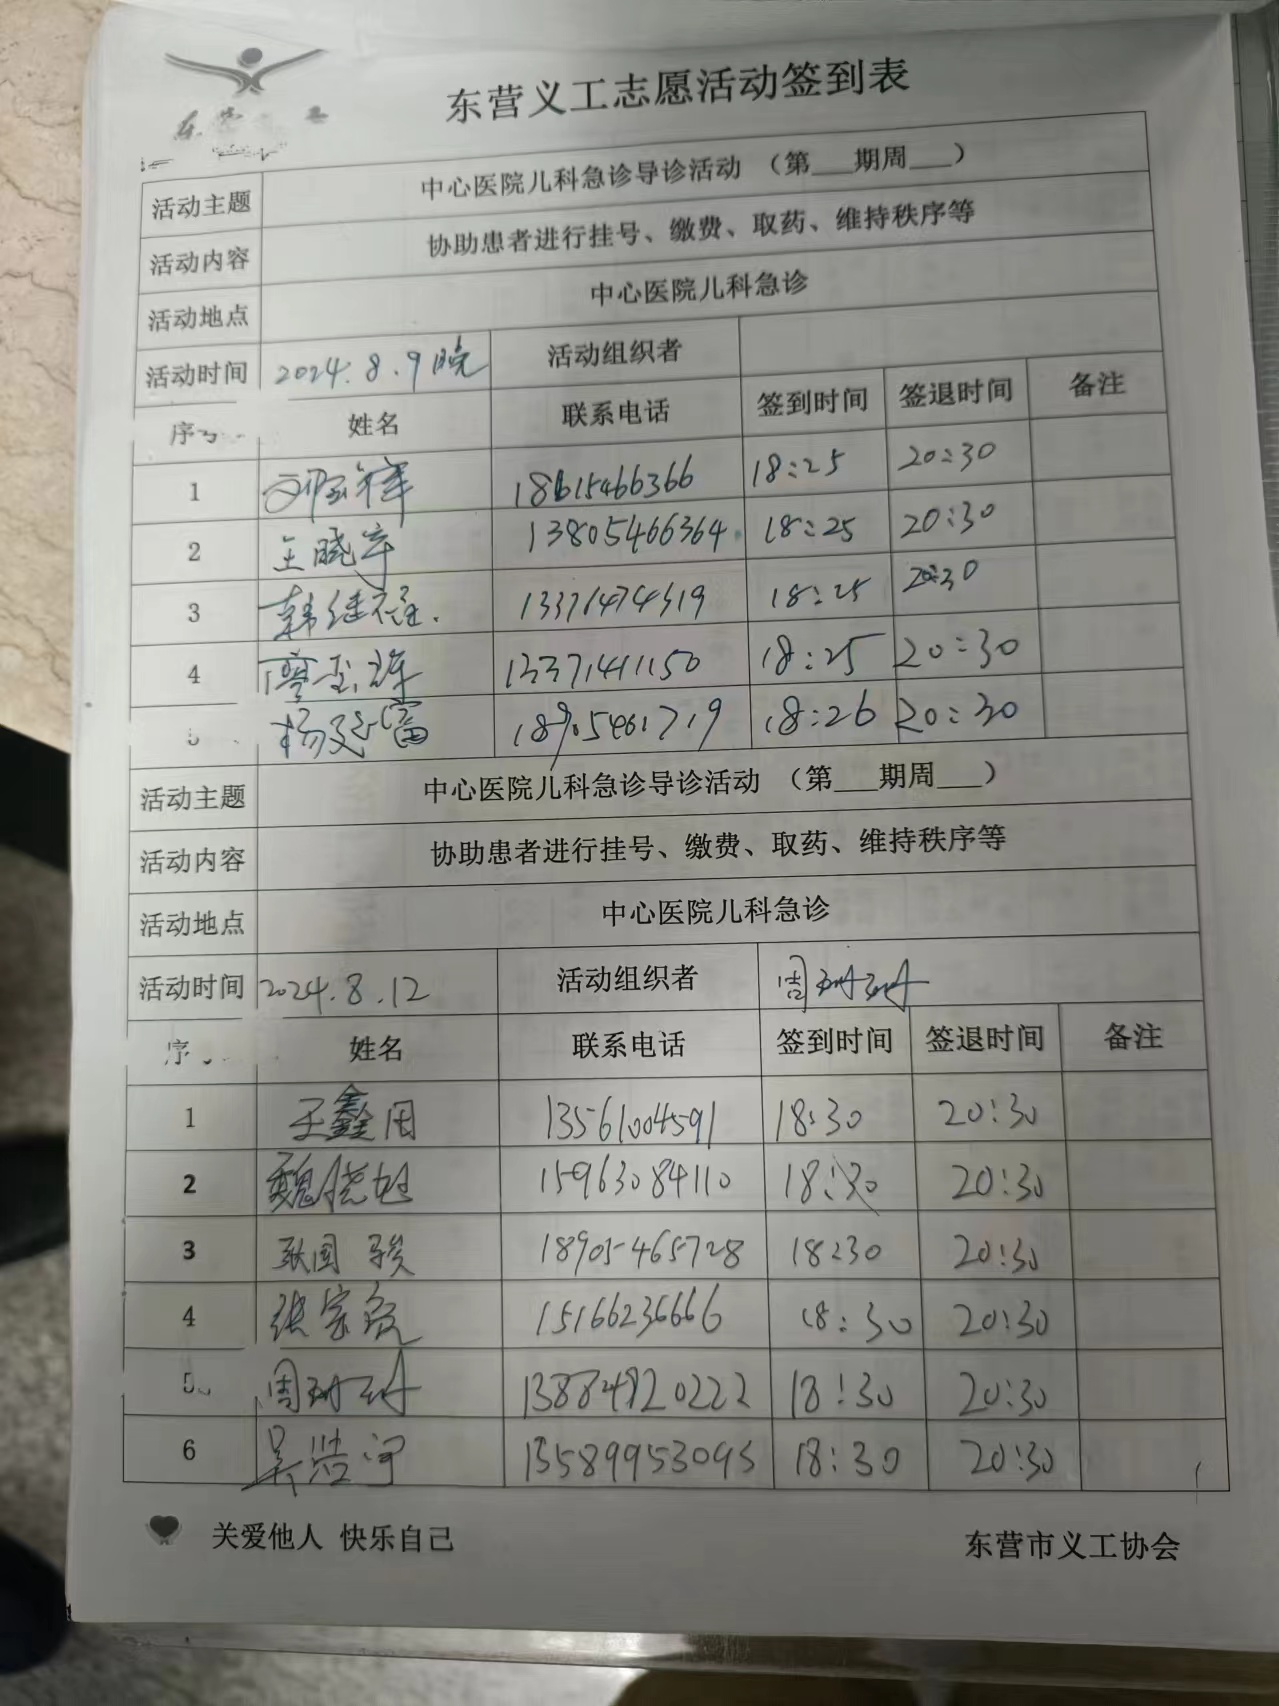 东营义工志愿活动签到表
活动主题 中心医院儿科急诊导诊活动 （第___期周___）
活动内容 协助患者进行挂号、缴费、取药、维持秩序等
活动地点 中心医院儿科急诊
活动时间 2024.8.9晚 活动组织者
姓名 联系电话 签到时间 签退时间 备注
1 18615466366 18:25 20:30
2 王晓军 13805466364 18:25 20:30
3 韩继 18:25 20:30
4 廖玉 13371411150 18:25 20:30
杨延富 18905461719 18:26 20:30
活动主题 中心医院儿科急诊导诊活动 （第___期周___）
活动内容 协助患者进行挂号、缴费、取药、维持秩序等
活动地点 中心医院儿科急诊
活动时间 2024.8.12 活动组织者 周
姓名 联系电话 签到时间 签退时间 备注
1 王鑫 13561004591 18:30 20:30
2 魏晓 15963084110 18:30 20:30
3 耿国骏 18905465728 18:30 20:30
4 张家 15166236666 18:30 20:30
5 周 13884920222 18:30 20:30
6 吴浩 15589953095 18:30 20:30
关爱他人 快乐自己 东营市义工协会